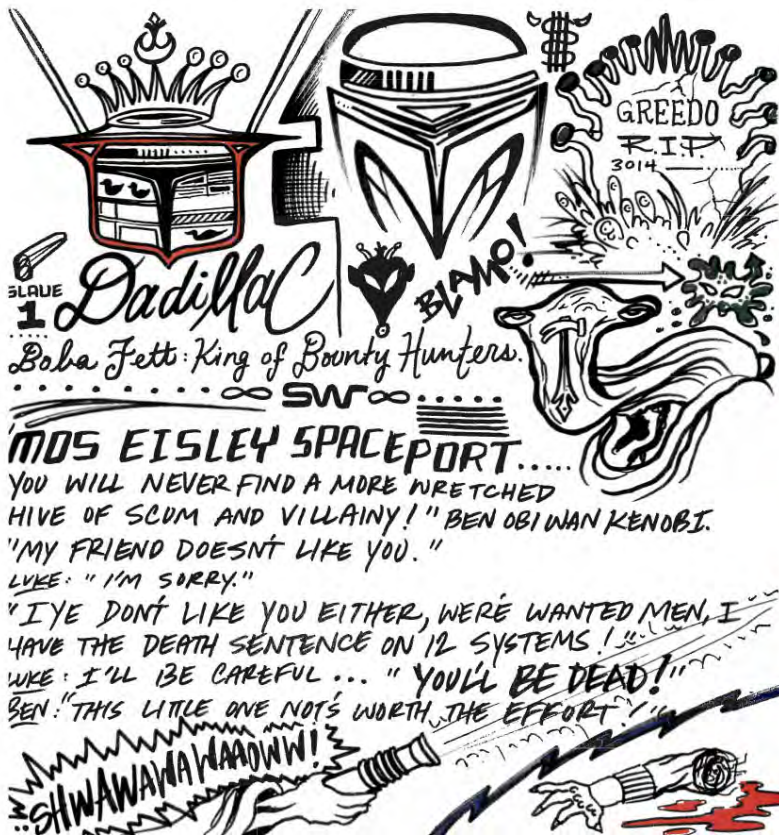 GREEDO
R.I.P.
3014
SLAVE
1
Dadillac
BLAMO!
Boba Fett: King of Bounty Hunters.
SW
"MOS EISLEY SPACEPORT.....
YOU WILL NEVER FIND A MORE WRETCHED
HIVE OF SCUM AND VILLAINY!" BEN OBI WAN KENOBI.
"MY FRIEND DOESN'T LIKE YOU."
LUKE: "I'M SORRY."
"IYE DON'T LIKE YOU EITHER, WERE WANTED MEN, I
HAVE THE DEATH SENTENCE ON 12 SYSTEMS!"
LUKE: I'LL BE CAREFUL... "YOU'LL BE DEAD!"
BEN: "THIS LITTLE ONE NOT'S WORTH THE EFFORT!"
SHWAWAWAWAAOWW!